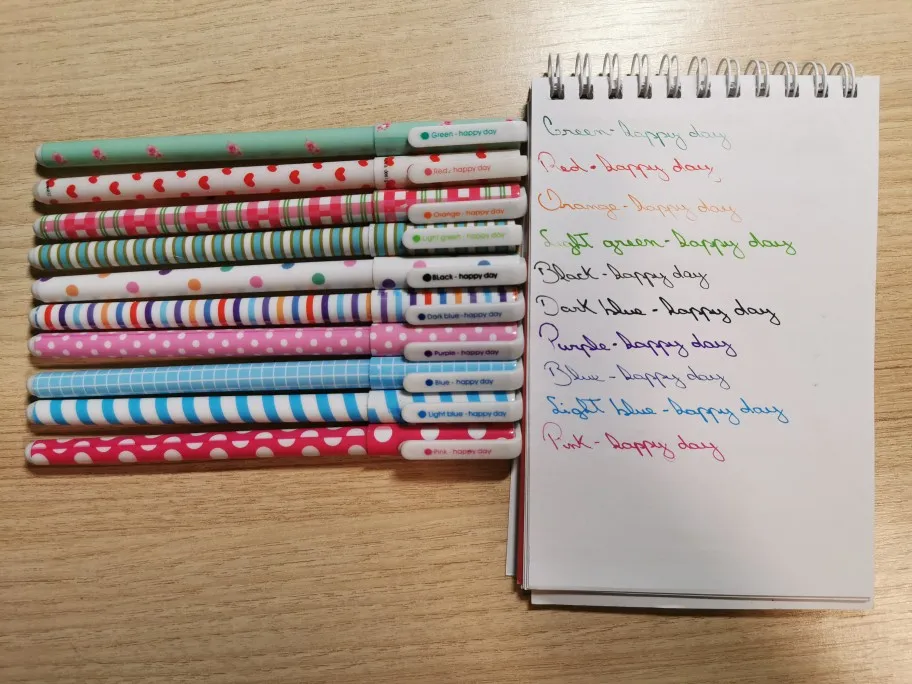 Green - happy day
Red - happy day
Orange - happy day
Light green - happy day
Black - happy day
Dark blue - happy day
Purple - happy day
Blue - happy day
Light blue - happy day
Pink - happy day
Green - happy day
Red - happy day
Orange - happy day
Light green - happy day
Black - happy day
Dark blue - happy day
Purple - happy day
Blue - happy day
Light blue - happy day
Pink - happy day